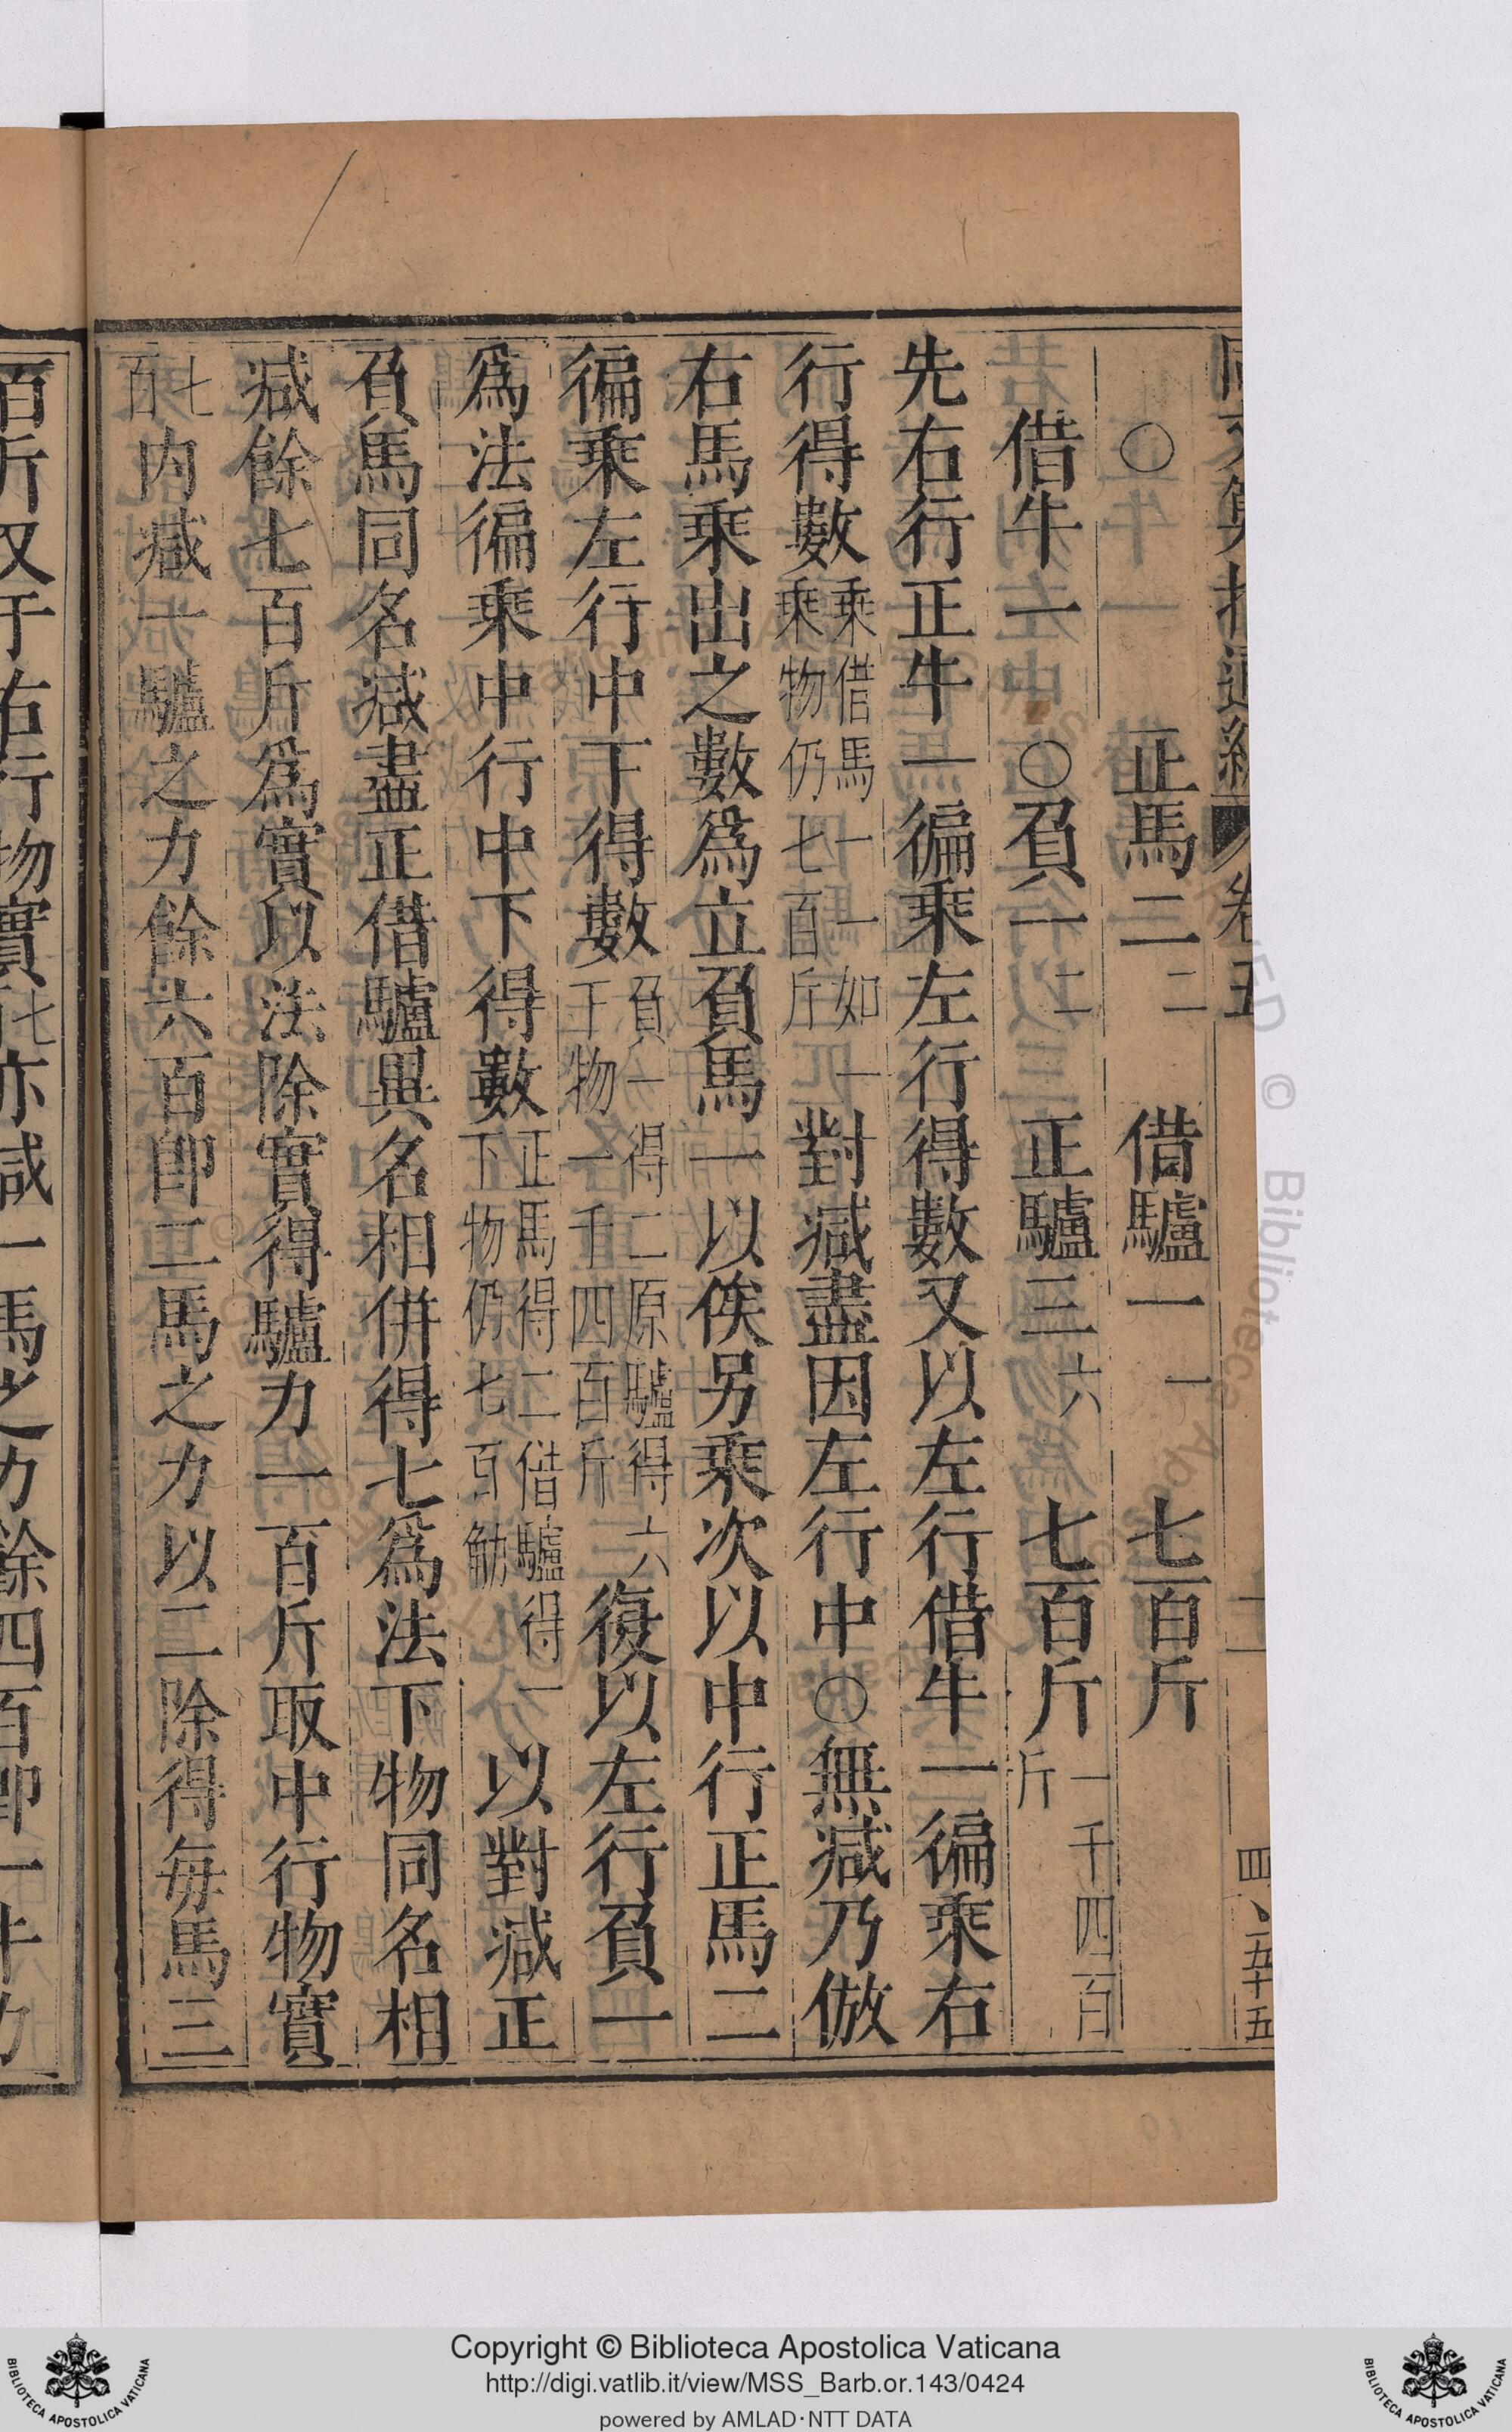 ○　正馬二二　借驢一一　七百斤
借牛一　○負一二　正驢三六　七百斤一千四百斤
先右行正牛一徧乘左行得數又以左行借牛一徧乘右
行得數乘借馬一一如一乘物仍七百斤對減盡因左行中○無減乃倣
右馬乘出之數爲立負馬一以俟另乘次以中行正馬二
徧乘左行中下得數負一得二原驢得六下物一千四百斤復以左行負一
爲法徧乘中行中下得數正馬得二借驢得一下物仍七百觔以對減正
負馬同名減盡正借驢異名相併得七爲法下物同名相
減餘七百斤爲實以法除實得驢力一百斤取中行物實
七百內減一驢之力餘六百卽二馬之力以二除得每馬三
百斤又于右行物實七百亦減一馬之力餘四百卽一牛力
卷五
二
四、五十五
BIBLIOTECA APOSTOLICA VATICANA
Copyright © Biblioteca Apostolica Vaticana
http://digi.vatlib.it/view/MSS_Barb.or.143/0424
powered by AMLAD·NTT DATA
BIBLIOTECA APOSTOLICA VATICANA